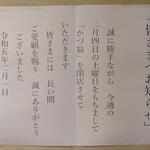 「皆さまへお知らせ」
誠に勝手ながら 今週の
二月四日の土曜日をもちまして
「かづ福」を閉店させて
いただきます
皆さまには 長い間
ご愛顧を賜り 誠にありがとう
ございました
令和五年二月一日